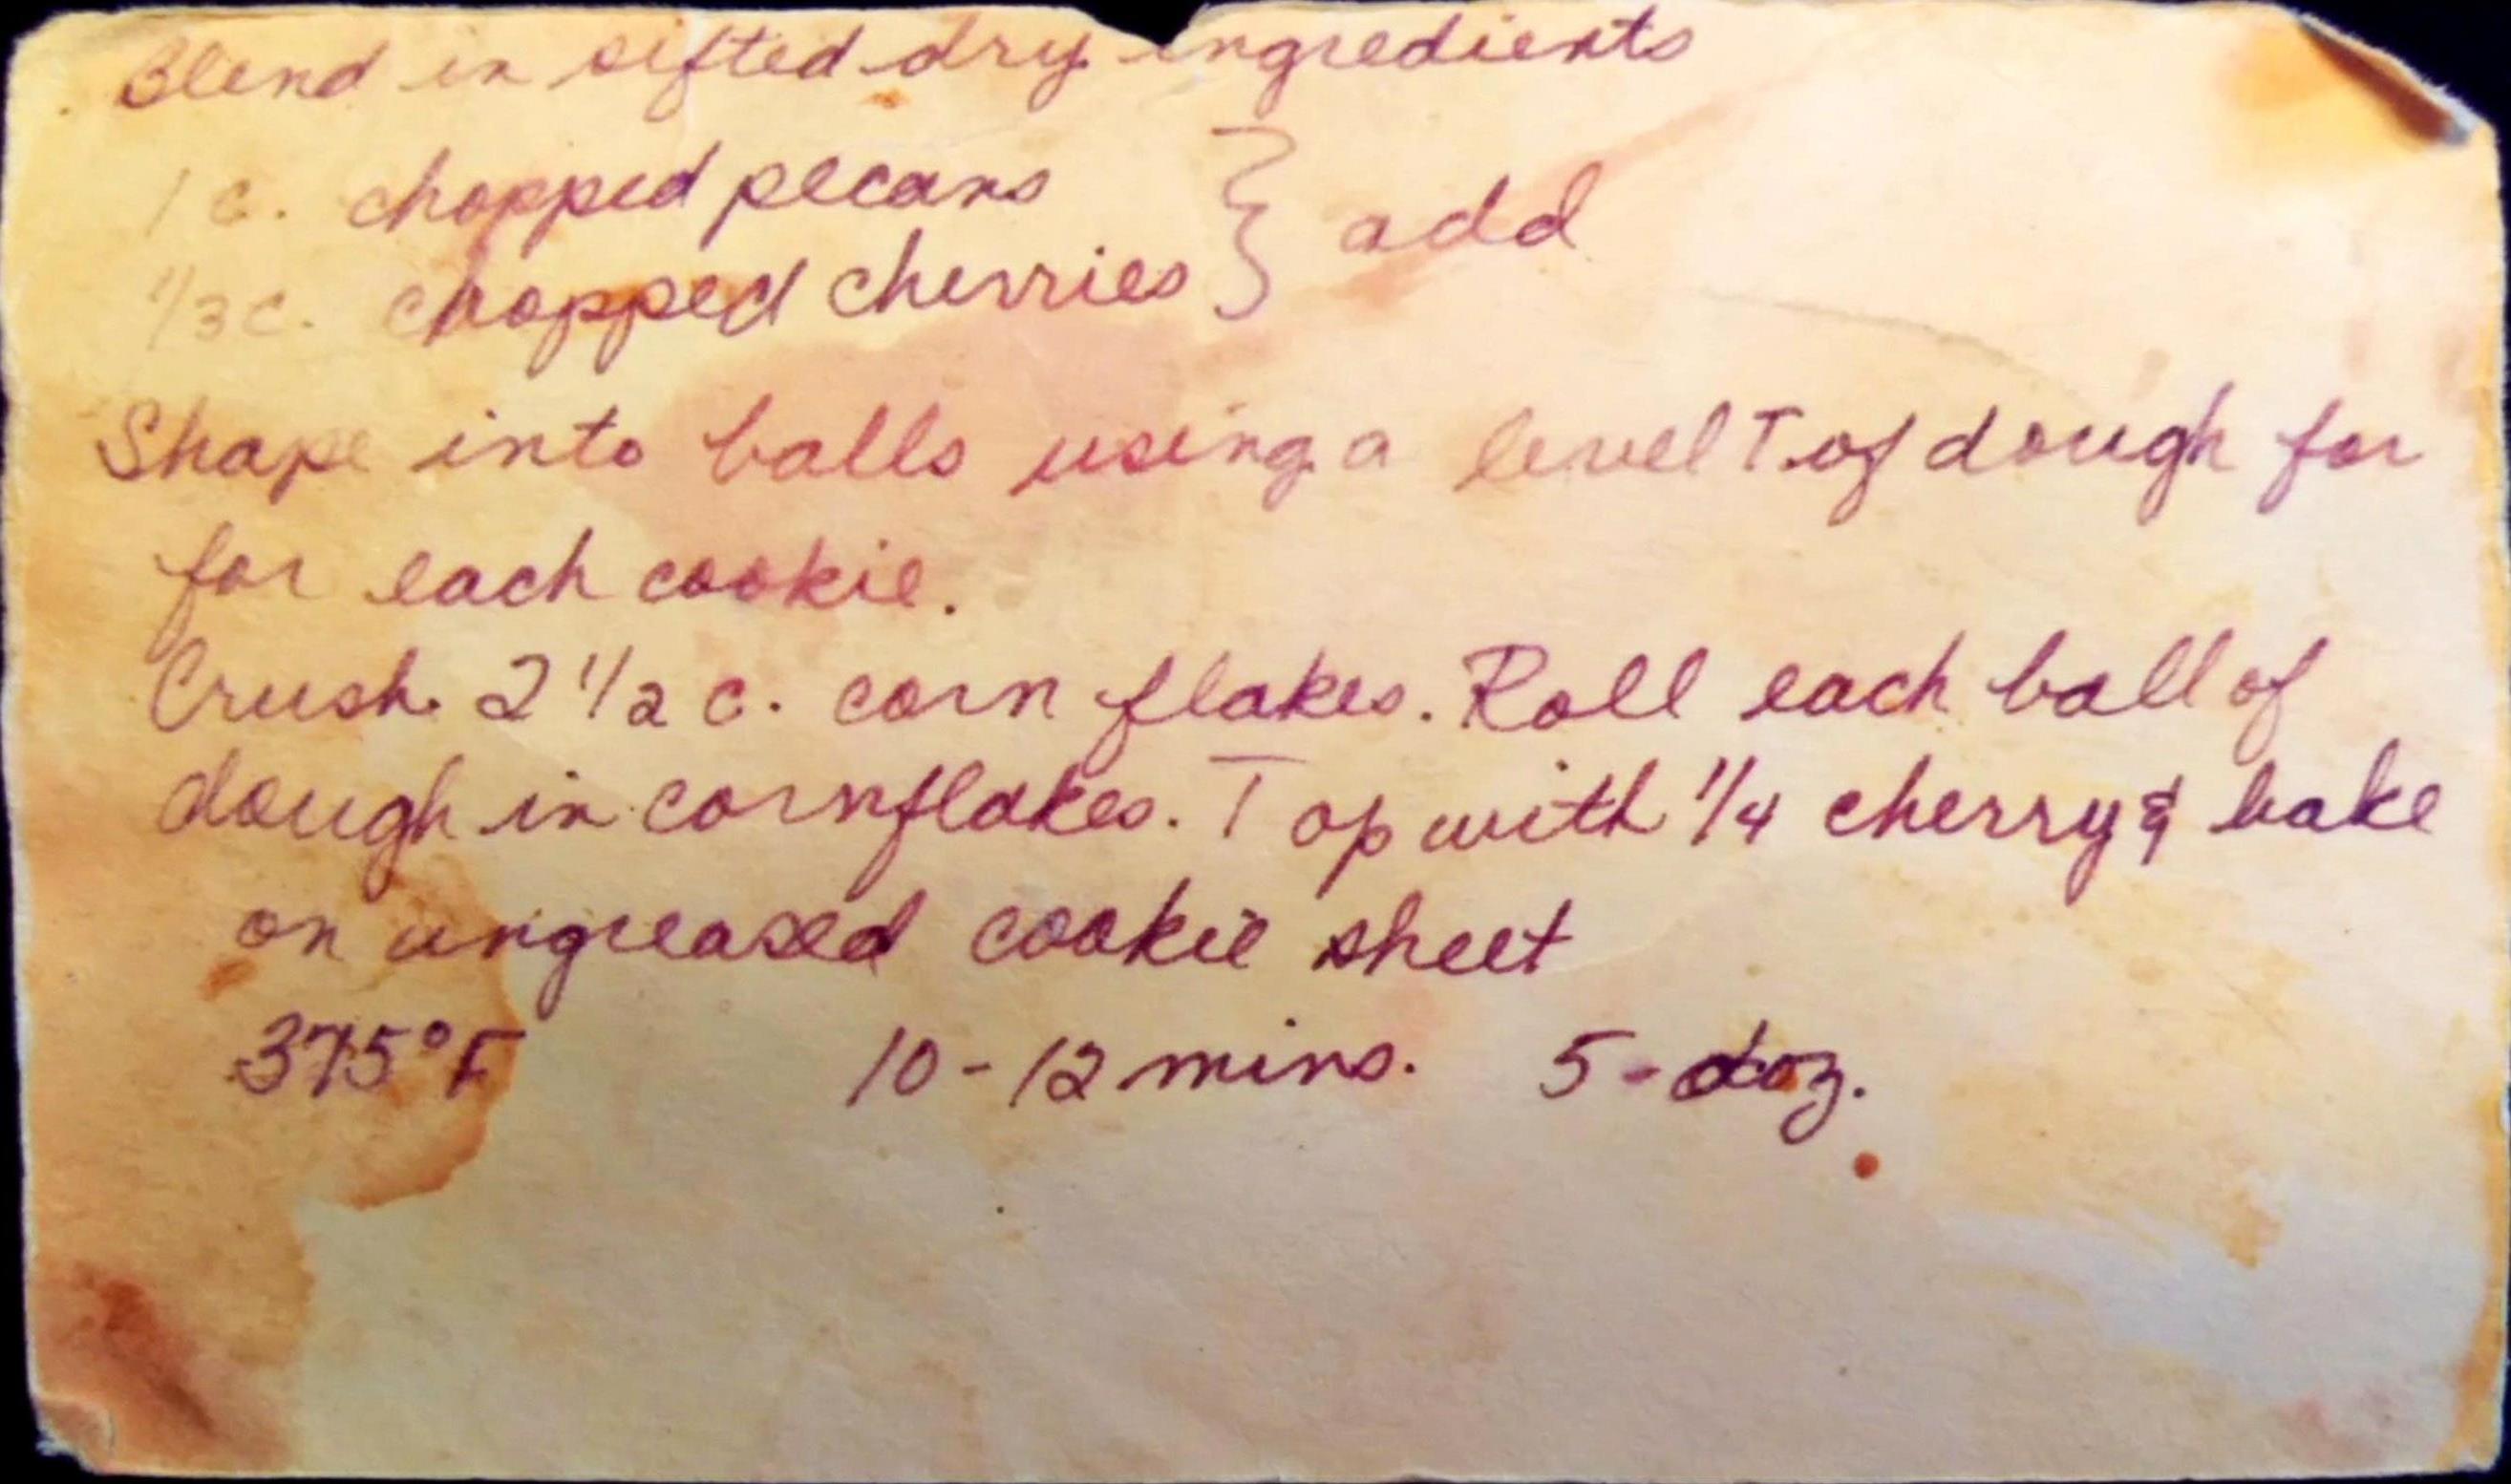 Blend in sifted dry ingredients
1 c. chopped pecans
1/3 c. chopped cherries } add
Shape into balls using a level T. of dough for
for each cookie.
Crush 2 1/2 c. corn flakes. Roll each ball of
dough in cornflakes. Top with 1/4 cherry & bake
on ungreased cookie sheet
375°F 10-12 mins. 5-doz.